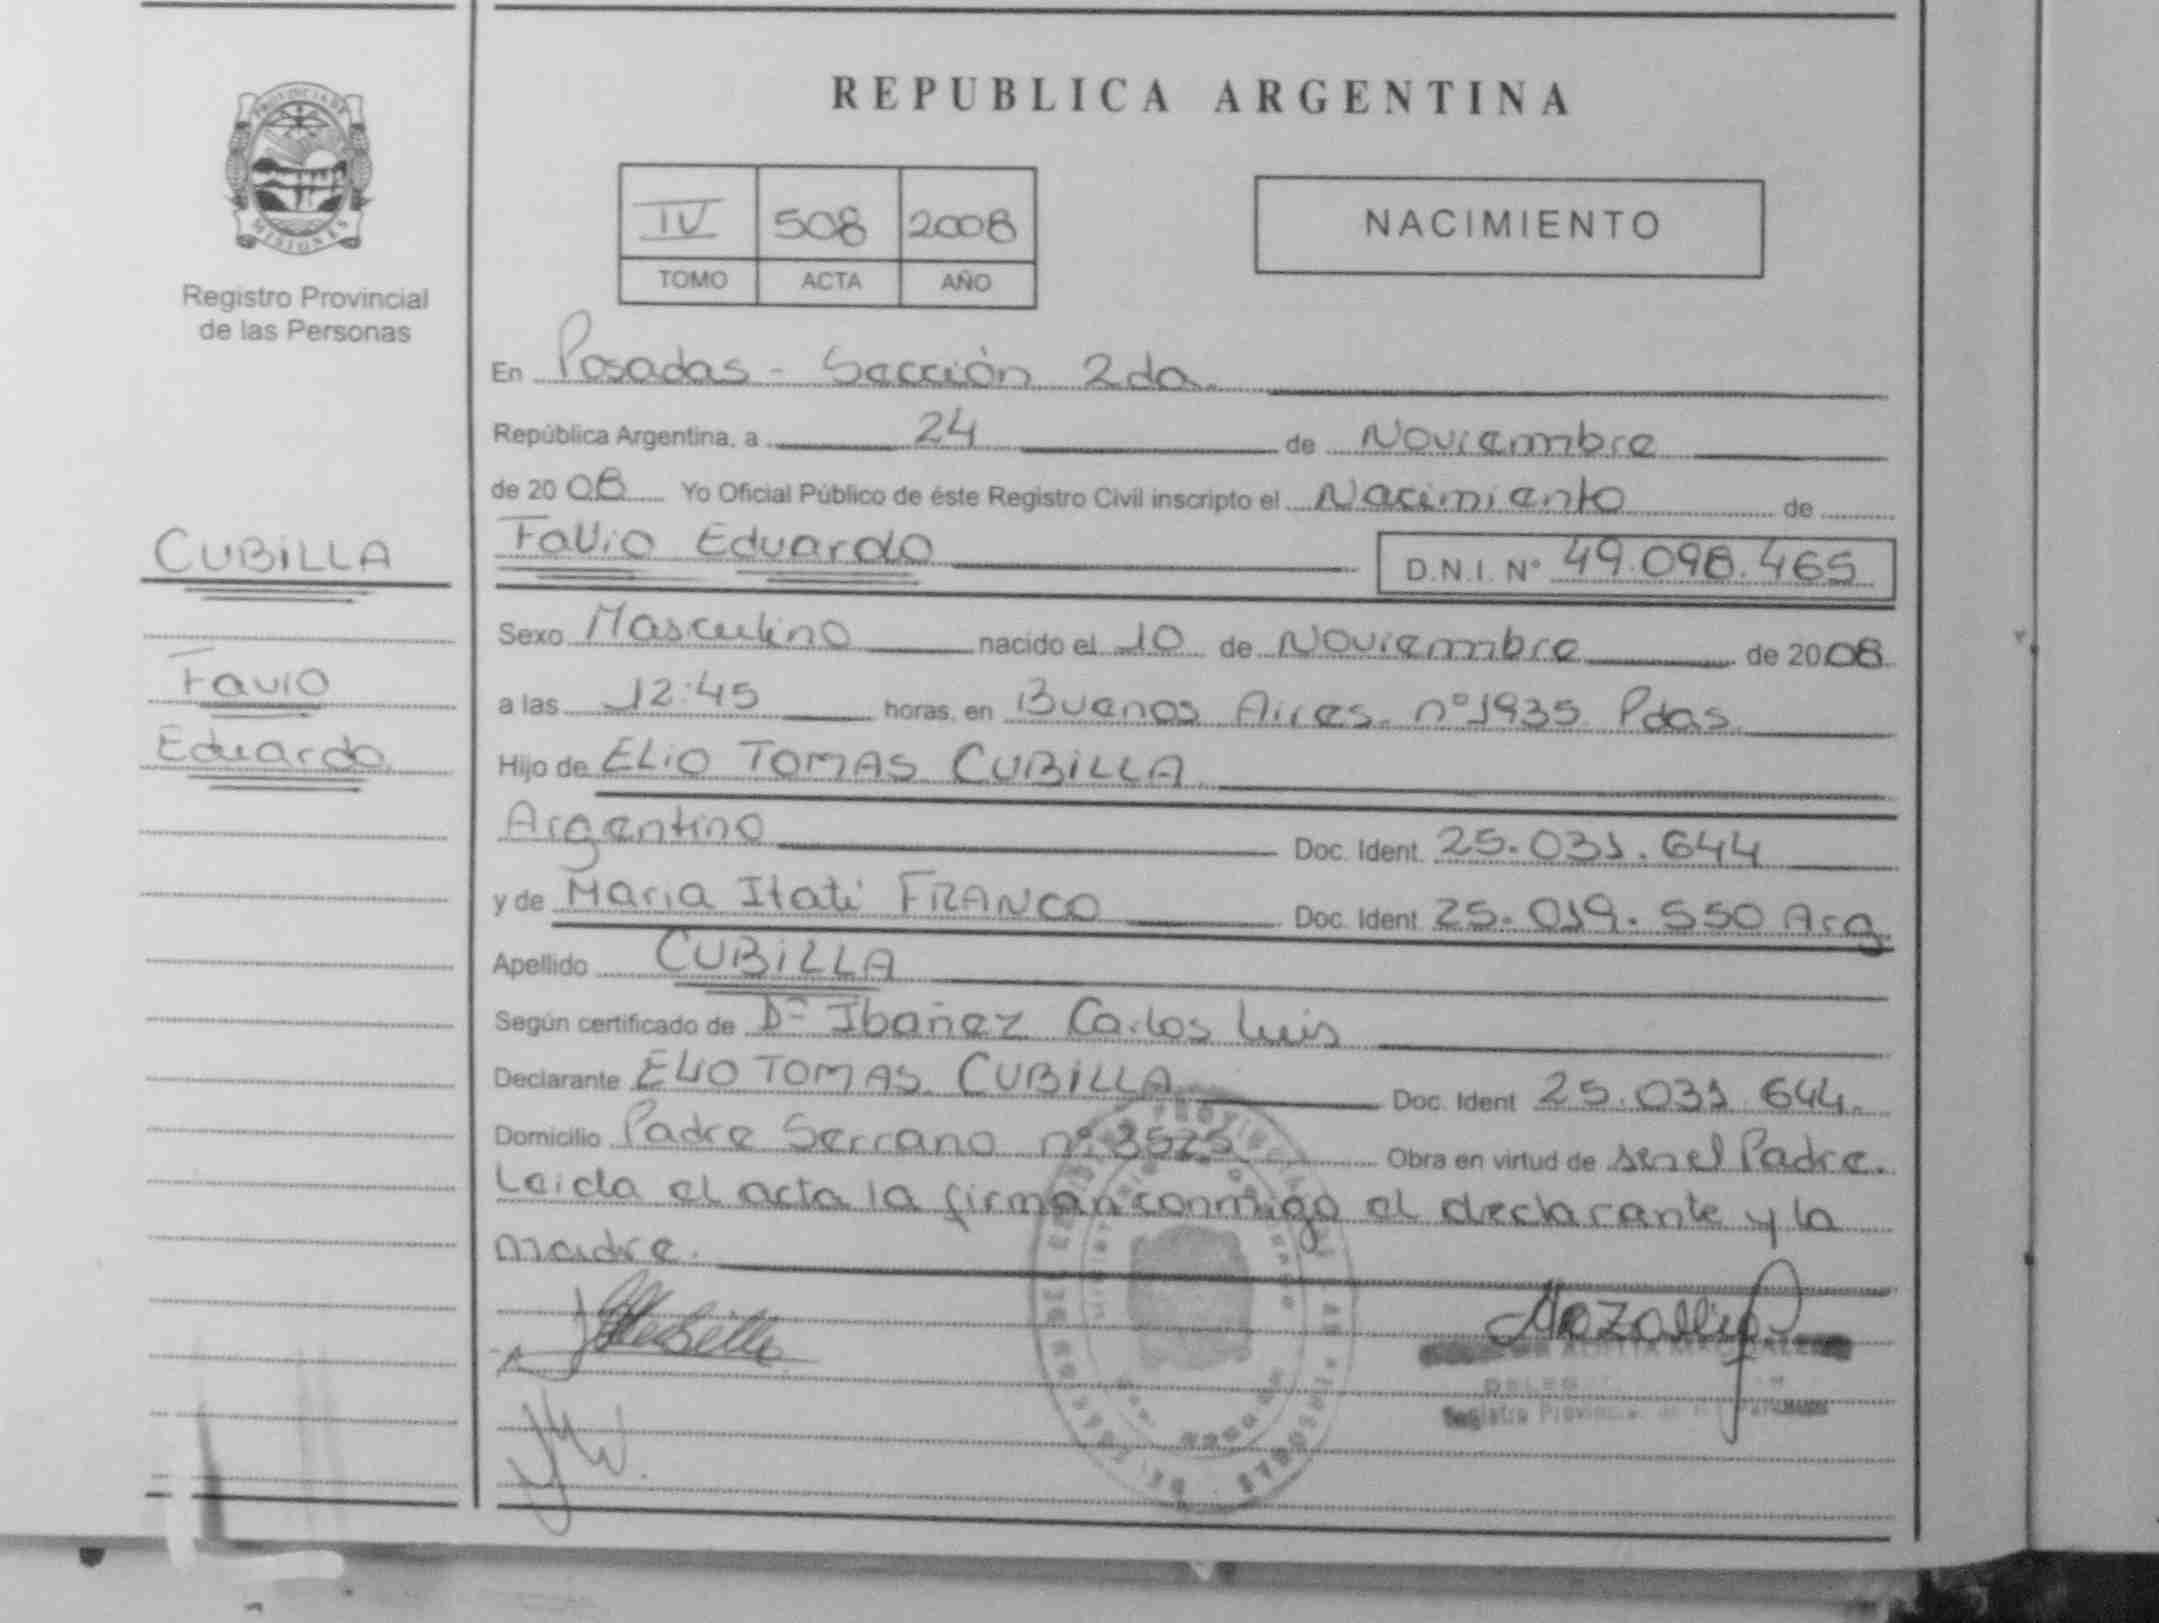 PROVINCIA DE
MISIONES
Registro Provincial
de las Personas
CUBILLA
Favio
Eduardo
REPUBLICA ARGENTINA
IV 508 2008
TOMO ACTA AÑO
NACIMIENTO
En Posadas - Sección 2da.
República Argentina, a 24 de Noviembre
de 20 08 Yo Oficial Público de éste Registro Civil inscripto el Nacimiento de
Favio Eduardo D.N.I. Nº 49.098.465
Sexo Masculino nacido el 10 de Noviembre de 2008
a las 12:45 horas, en Buenos Aires nº1935 Pdas.
Hijo de ELIO TOMAS CUBILLA
Argentino Doc. Ident. 25.031.644
y de Maria Itati FRANCO Doc. Ident. 25.019.550 Arg.
Apellido CUBILLA
Según certificado de Dr Ibañez Carlos Luis
Declarante ELIO TOMAS CUBILLA Doc. Ident 25.031.644.
Domicilio Padre Serrano nº 3525 Obra en virtud de ser el Padre.
Leida el acta la firman conmigo el declarante y la
madre.
Registro Provincial